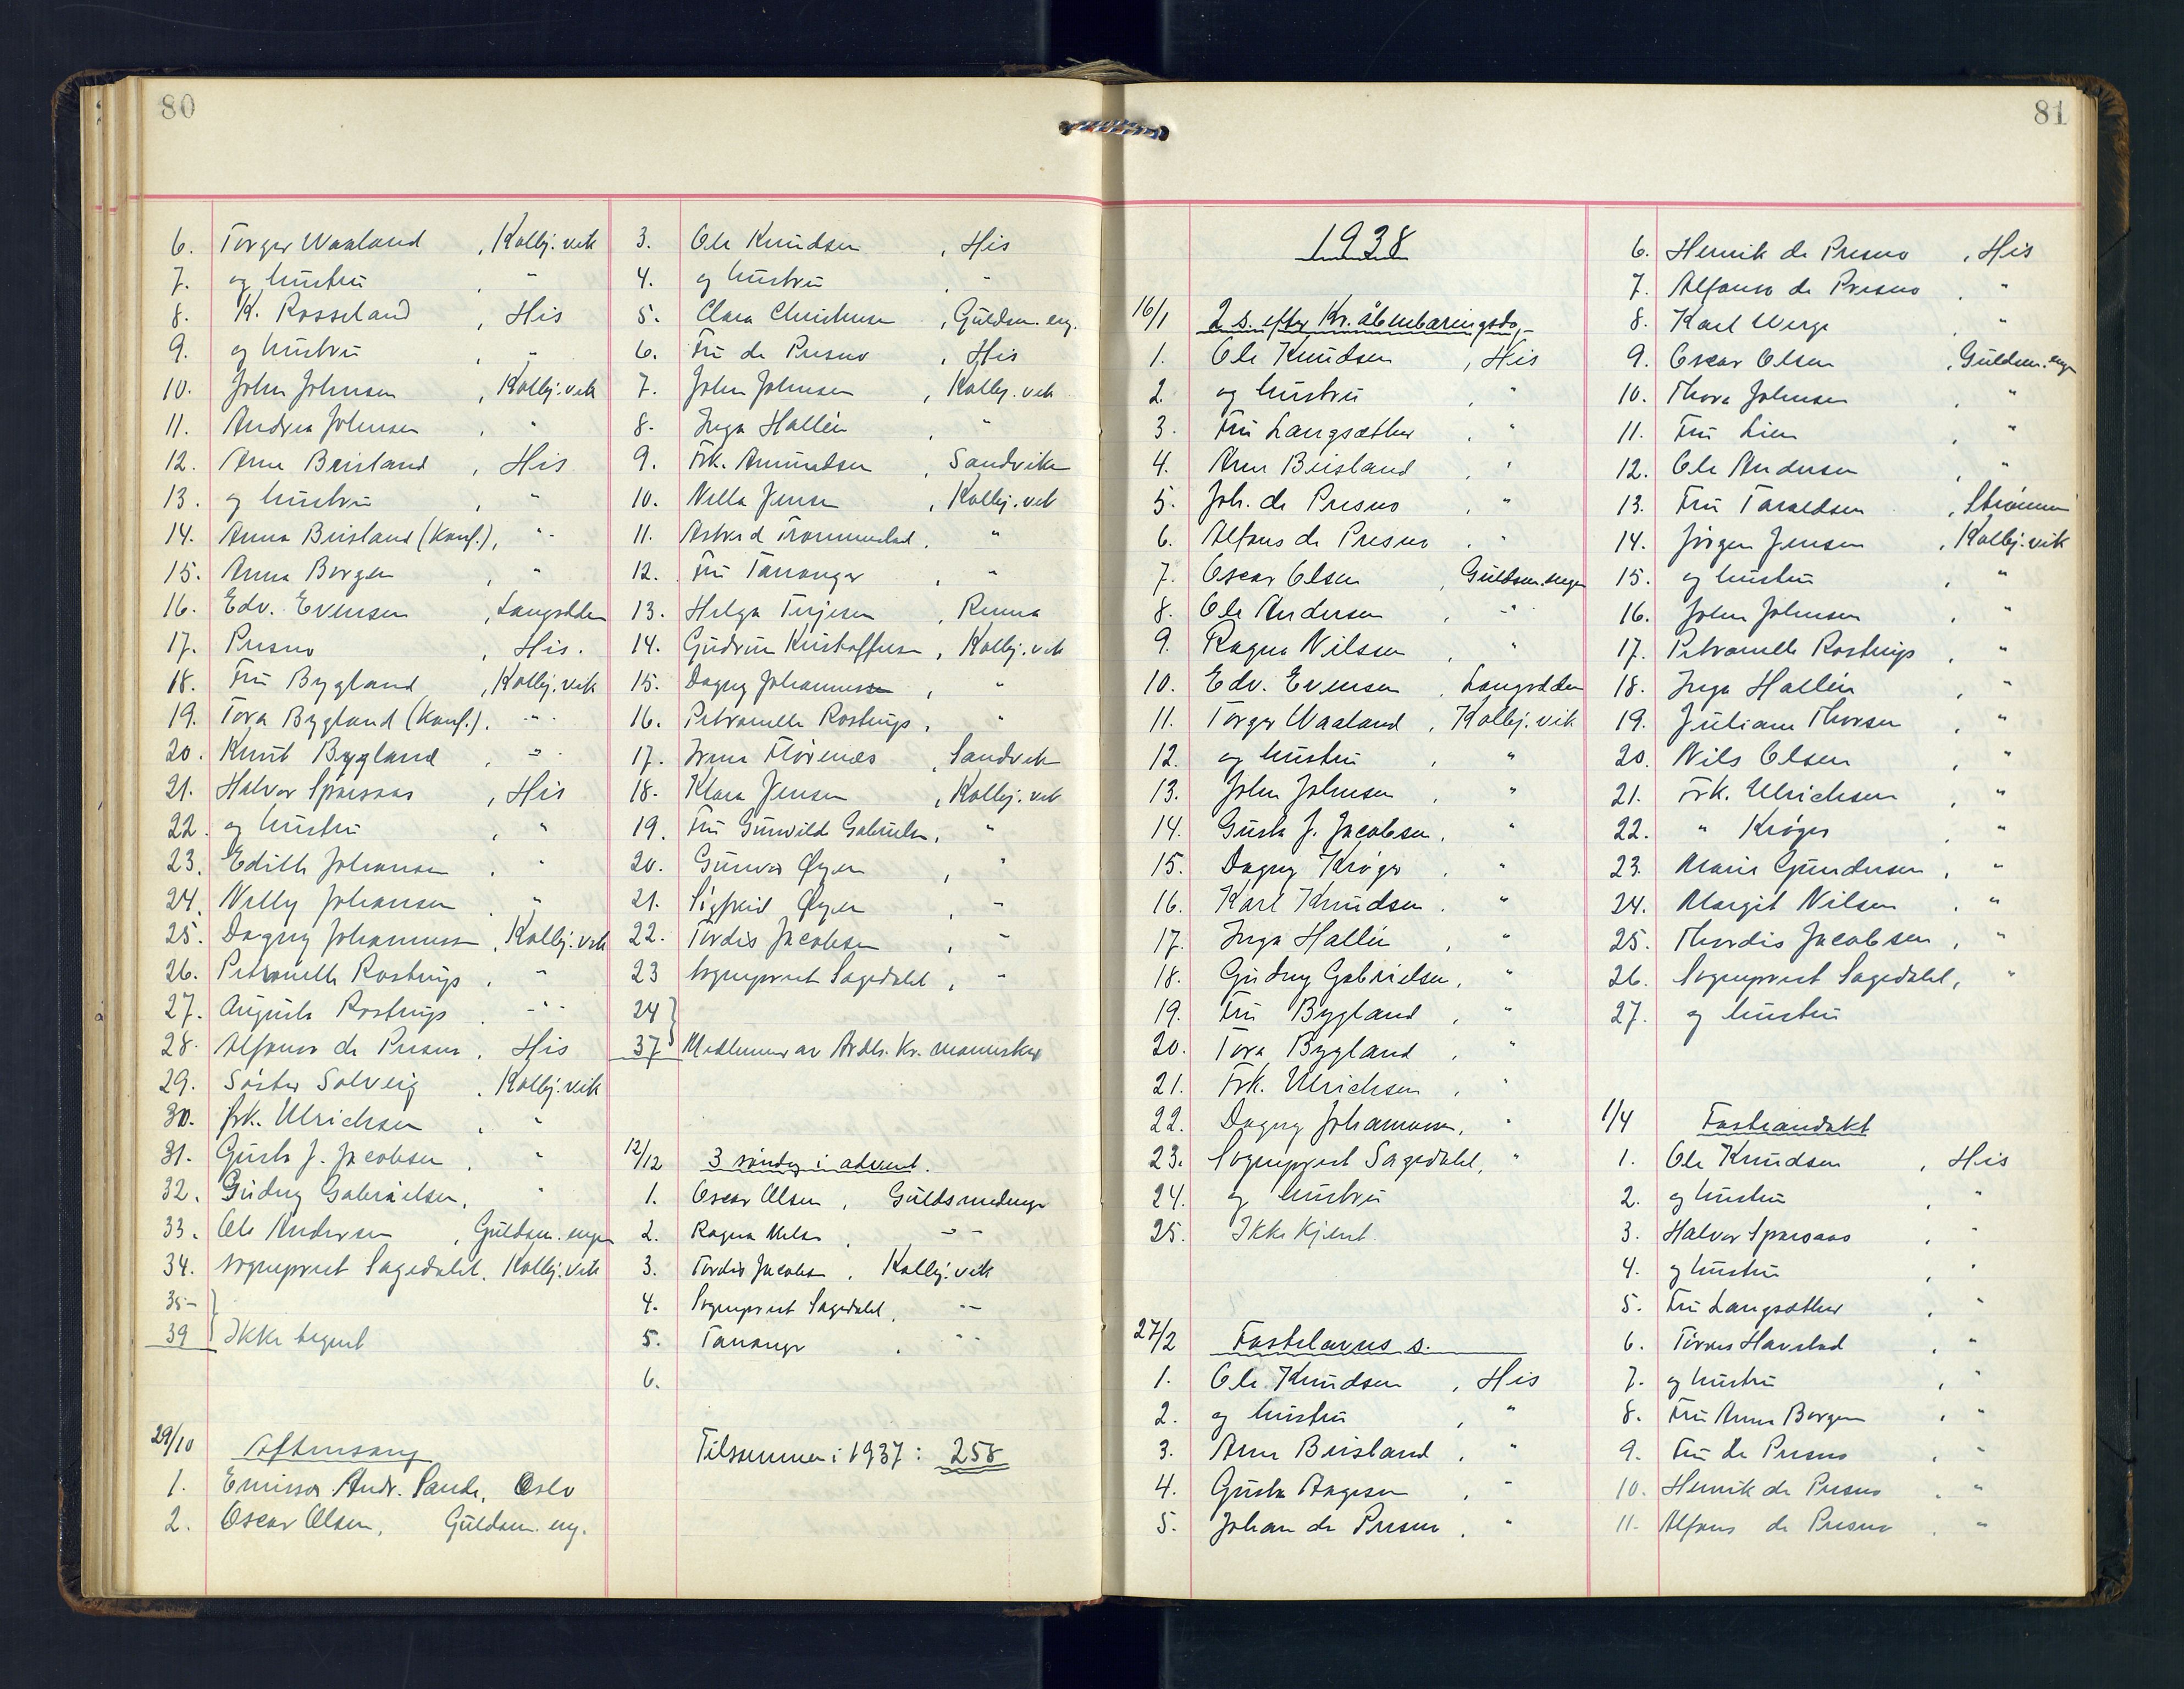 80
6. Torger Waaland , Kolbj.vik
7. og hustru , "
8. K. Rosseland , His
9. og hustru , "
10. John Johnsen , Kolbj.vik
11. Andrea Johnsen , "
12. Arne Beisland , His
13. og hustru , "
14. Anna Beisland (Konf.), "
15. Anna Borgen , "
16. Edv. Evensen , Langsodden
17. Presno , His.
18. Fru Bygland , Kolbj.vik
19. Tora Bygland (Konf.). "
20. Knut Bygland , "
21. Halvor Sparsaas , His
22. og hustru , "
23. Edith Johansen . "
24. Nelly Johansen . "
25. Dagny Johannessen , Kolbj.vik
26. Petronelle Rostrup , "
27. Augusta Rostrup . "
28. Alfonso de Presno , His
29. Søster Solveig . Kolbj.vik
30. Frk. Ulrichsen . "
31. Gusta J. Jacobsen . "
32. Gudny Gabrielsen . "
33. Ole Andersen , Guldsm.engen
34. sogneprest Sagedahl . Kolbj.vik
35-
39 } Ikke tegnet
29/10 Aftensang
1. Emissær Andr. , Oslo
2. Oscar Olsen, Guldsm. eng.
3. Ole Knudsen , His
4. og hustru . "
5. Clara Christensen , Guldsm. eng.
6. Fru de Presno , His
7. John Johnsen , Kolbj. vik
8. Inga Hallén , "
9. Frk. Amundsen , Sandviken
10. Nella Jensen , Kolbj.vik
11. Astrid . "
12. Fru Tananger , "
13. Helga Terjesen , Renna
14. Gudrun Kristoffersen , Kolbj.vik
15. Dagny Johannessen , "
16. Petronelle Rostrup , "
17. Irma Florenæs , Sandvik
18. Klara Jensen , Kolbj. vik
19. Fru Gunvild Gabrielsen, "
20. Gunvor Øyen , "
21. Sigfrid Øyen , "
22. Tordis Jacobsen , "
23 sogneprest Sagedahl , "
24
37 } Medlemmer av Ardls. Kr.
12/12 3 søndag i advent.
1. Oscar Olsen , Guldsmedenge
2. Ragna Nilsen , "
3. Tordis Jacobsen , Kolbj.vik
4. Sogneprest Sagedahl , "
5. Tananger . "
6.
Tilsammen i 1937: 258
81
1938
16/1 2 s. efter Kr. åbenbaringsdg.
1. Ole Knudsen , His
2. og hustru , "
3. Fru Langsæther , "
4. Arne Beisland , "
5. Joh. de Presno , "
6. Alfons de Presno . "
7. Oscar Olsen , Guldsm.engen
8. Ole Andersen , "
9. Ragna Nilsen , "
10. Edv. Evensen , Langodden
11. Torger Waaland , Kolbj.vik
12. og hustru , "
13. John Johnsen , "
14. Gusta J. Jacobsen , "
15. Dagny Krøger . "
16. Karl Knudsen . "
17. Inga Hallén , "
18. Gudny Gabrielsen, "
19. Fru Bygland , "
20. Tora Bygland , "
21. Frk. Ulrichsen , "
22. Dagny Johannesen, "
23. Sogneprest Sagedahl, "
24. og hustru
25. Ikke kjent.
27/2 Fastelavns s.
1. Ole Knudsen , His
2. og hustru , "
3. Arne Beisland , "
4. Gusta Aagesen , "
5. Johan de Presno , "
6. Henrik de Presno , His
7. Alfonso de Presno . "
8. Karl Werge , "
9. Oscar Olsen , Guldsm.enge
10. Thora Johnsen , "
11. Fru Lien , "
12. Ole Andersen , "
13. Fru Taraldsen , Strømmen
14. Jørgen Jensen , Kolbj.vik
15. og hustru , "
16. John Johnsen , "
17. Petronelle Rostrup , "
18. Inga Hallén , "
19. Juliane Thorsen , "
20. Nils Olsen , "
21. Frk. Ulrichsen , "
22. " Krøger , "
23. Marie Gundersen , "
24. Margit Nilsen . "
25. Thordis Jacobsen , "
26. Sogneprest Sagedahl, "
27. og hustru
1/4 Fasteandakt
1. Ole Knudsen , His
2. og hustru , "
3. Halvor Sparsaas , "
4. og hustru , "
5. Fru Langsæther , "
6. Havstad , "
7. og hustru , "
8. Fru Anna Borgen , "
9. Fru de Presno , "
10. Henrik de Presno . "
11. Alfons de Presno . "